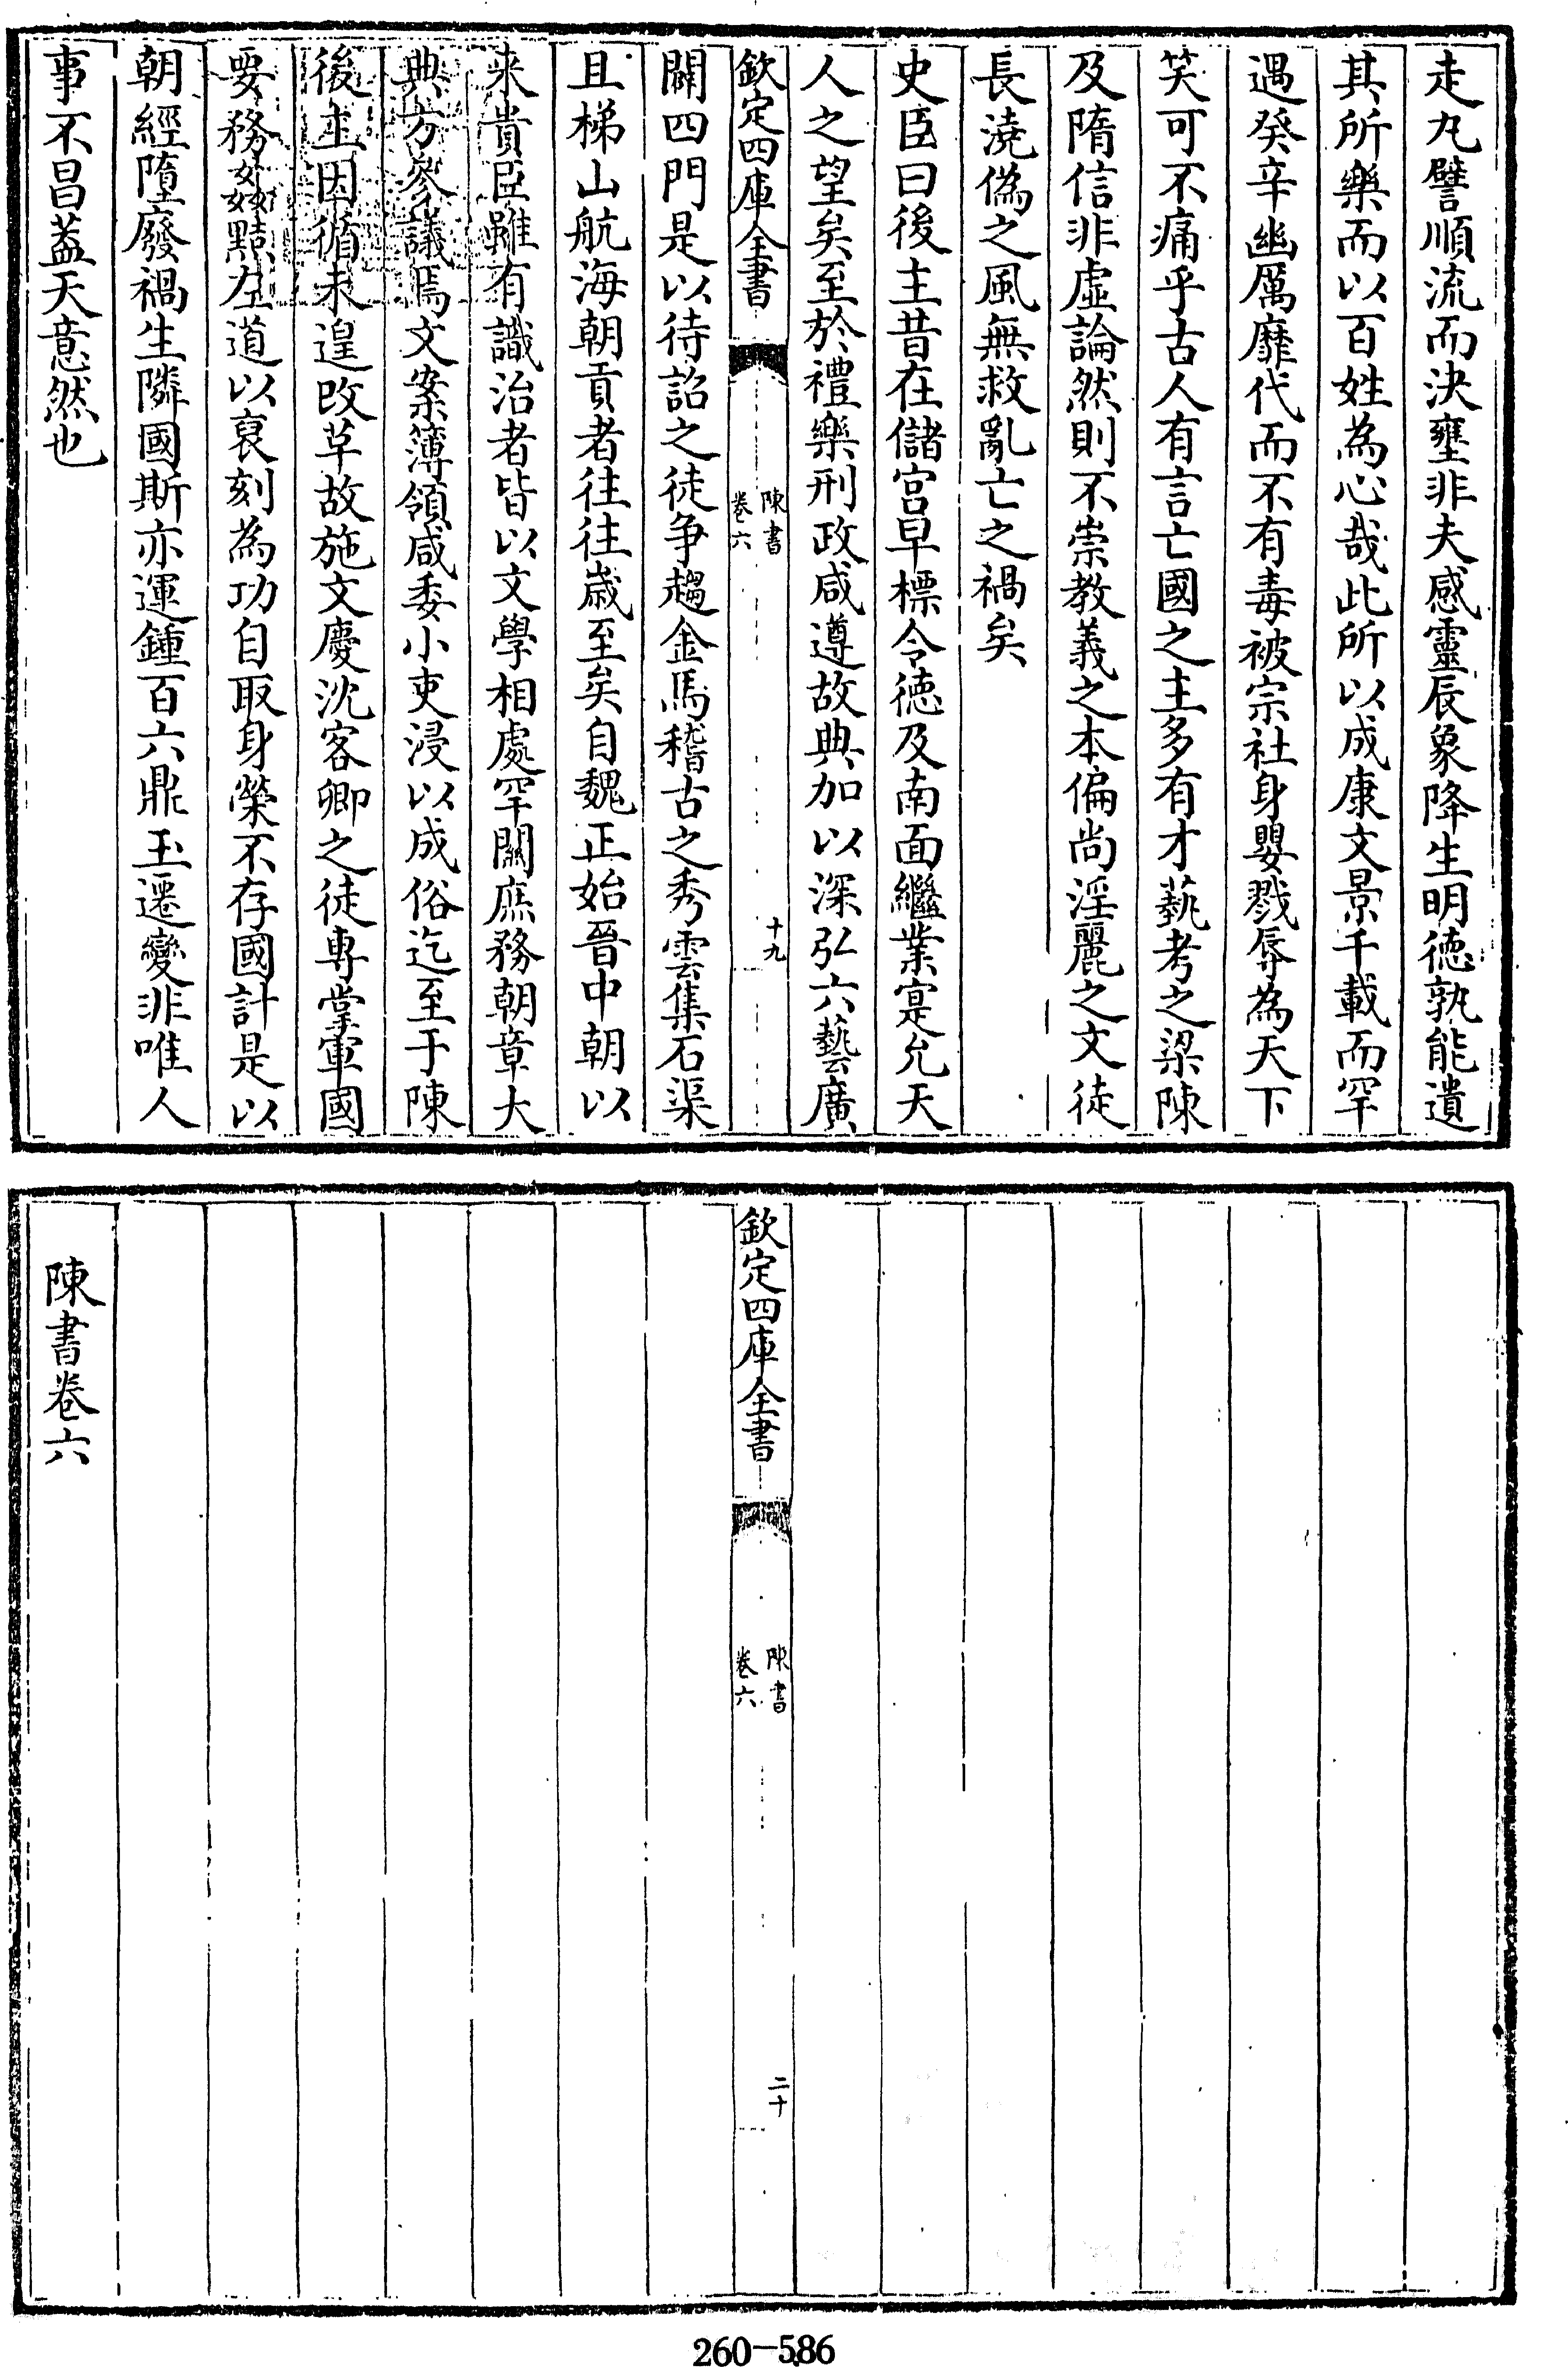 走丸譬順流而決壅非夫感靈辰象降生明徳孰能遺
其所樂而以百姓為心哉此所以成康文景千載而罕
遇癸辛幽厲靡代而不有毒被宗社身嬰戮辱為天下
笑可不痛乎古人有言亡國之主多有才藝考之梁陳
及隋信非虛論然則不崇教義之本偏尚淫麗之文徒
長澆偽之風無救亂亡之禍矣
史臣曰後主昔在儲宮早標令徳及南面繼業寔允天
人之望矣至於禮樂刑政咸遵故典加以深弘六藝廣
欽定四庫全書
陳書
卷六
十九
闢四門是以待詔之徒争趨金馬稽古之秀雲集石渠
且梯山航海朝貢者往往歳至矣自魏正始晉中朝以
来貴臣雖有識治者皆以文學相處罕關庶務朝章大
典方參議焉文案簿領咸委小吏浸以成俗迄至于陳
後主因循未遑改草故施文慶沈客卿之徒専掌軍國
要務姦黠左道以裒刻為功自取身榮不存國計是以
朝經墮廢禍生隣國斯亦運鍾百六鼎玉遷變非唯人
事不昌葢天意然也
欽定四庫全書
陳書
卷六
二十
陳書卷六
260-586